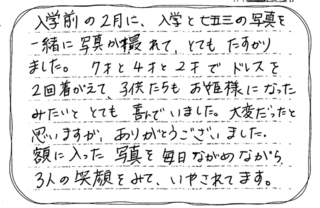 入学前の2月に、入学と七五三の写真を
一緒に写真が撮れて、とてもたすかり
ました。 7才と4才と2才でドレスを
2回着がえて、子供たちも お姫様になった
みたいと とても 喜んでいました。大変だったと
思いますが、ありがとうございました。
額に入った 写真を毎日ながめながら、
3人の笑顔をみて、いやされてます。